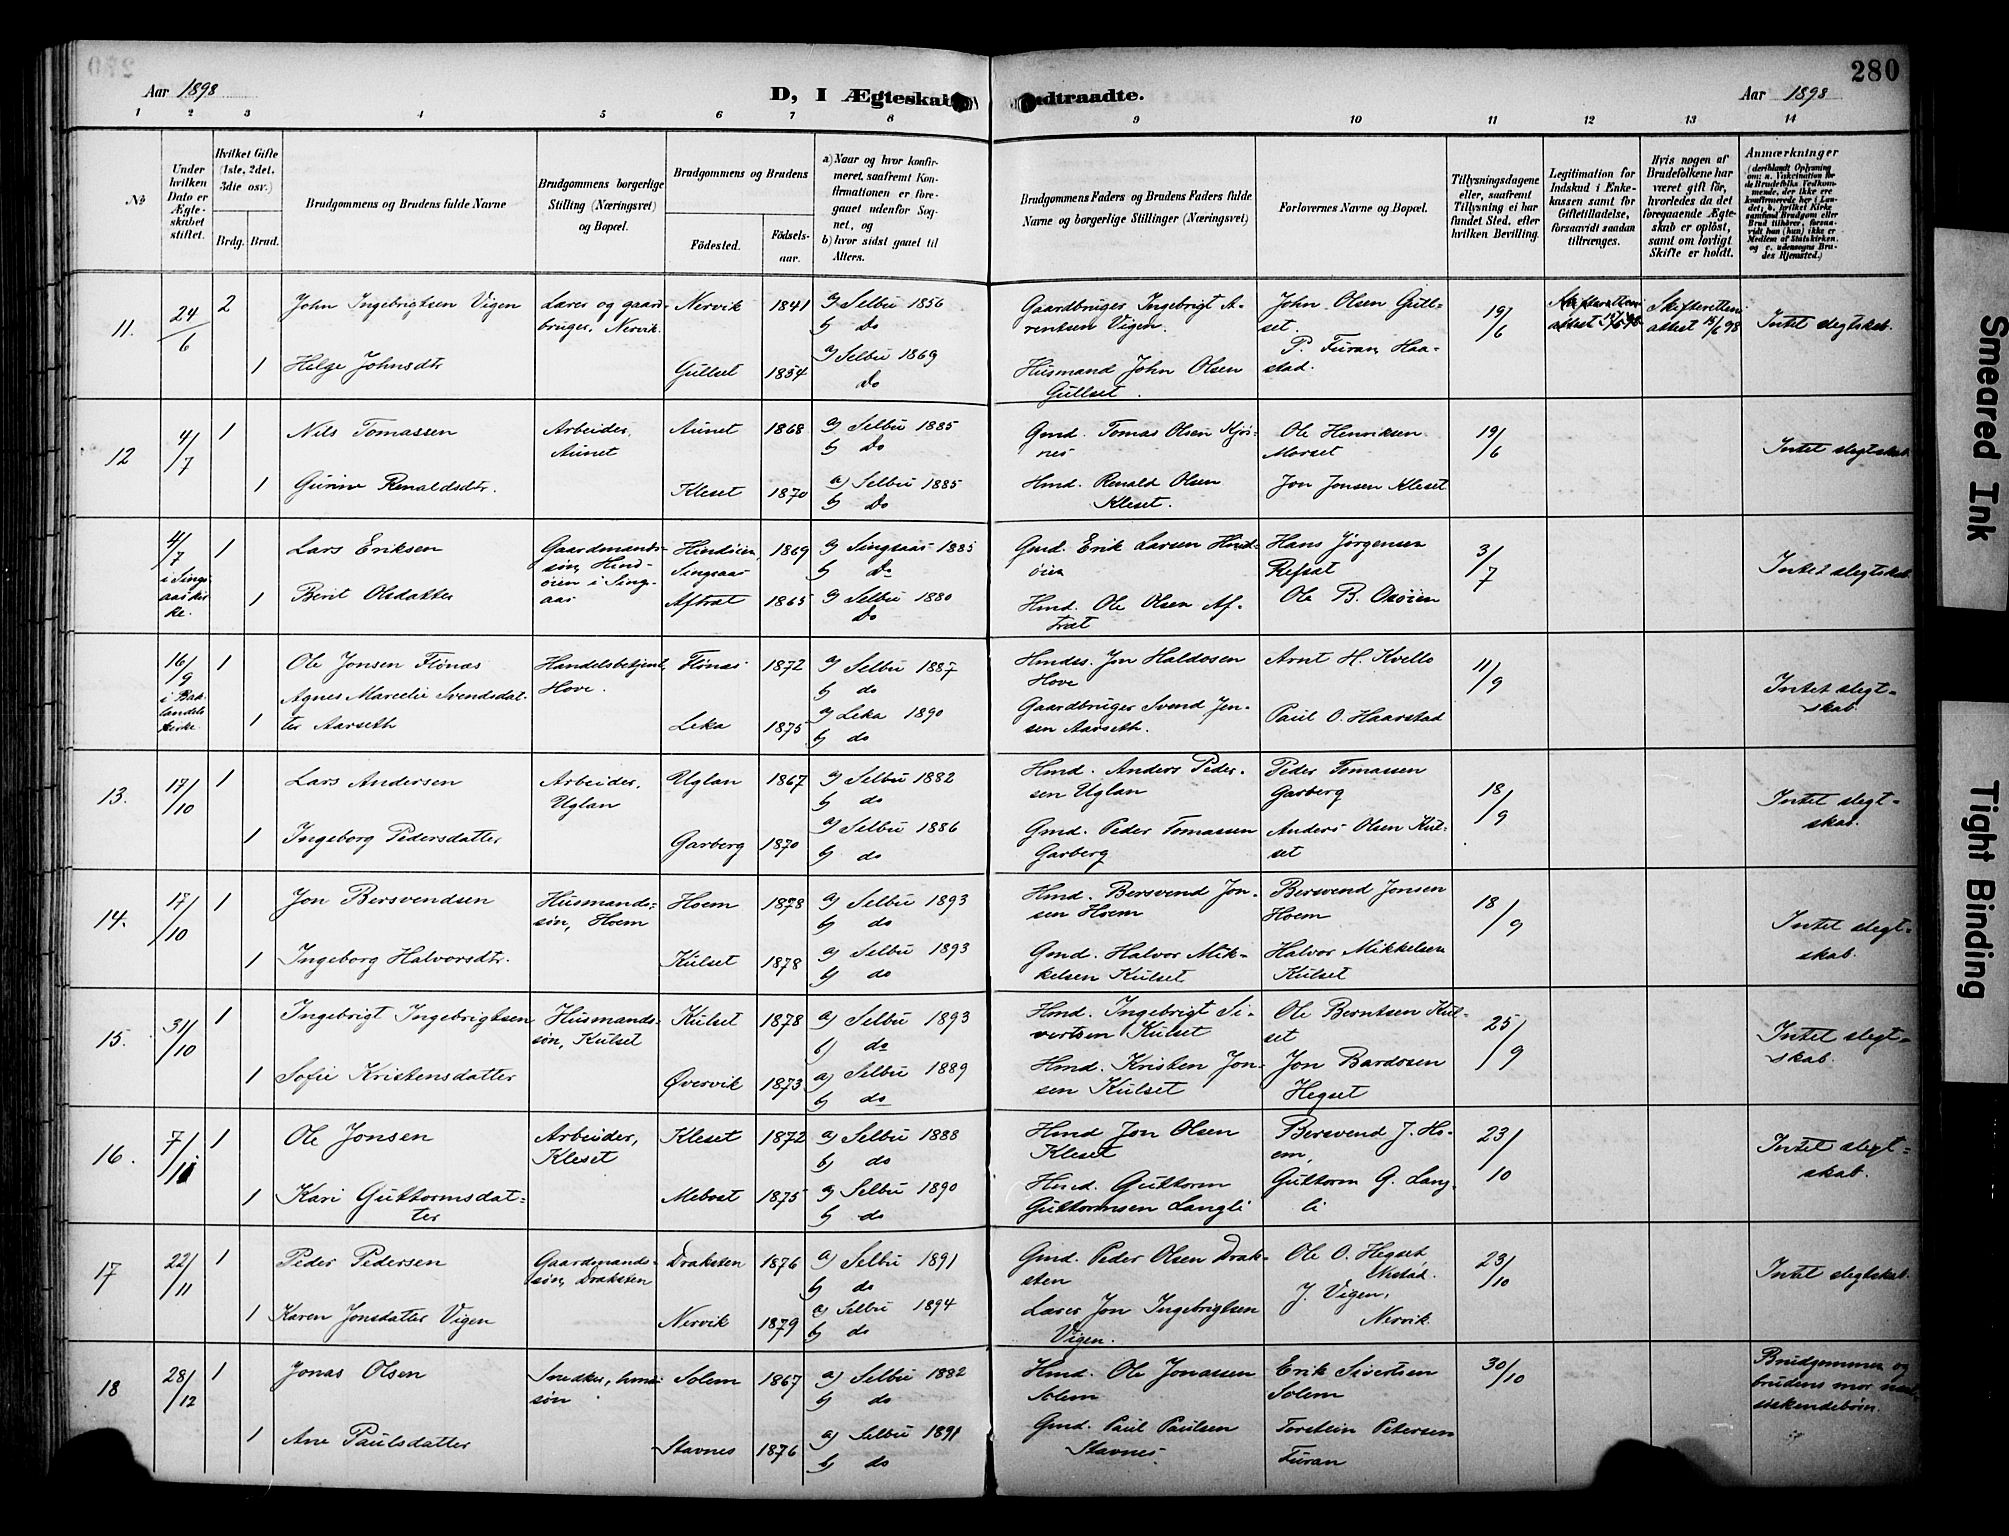 280
Aar 1898
D, I Ægteskab
Indtraadte.
Aar 1898
1 2 3 4 5 6 7 8 9 10 11 12 13 14
No
Under hvilken Dato er Ægteskabet stiftet.
Hvilket Gifte (1ste, 2det, 3die osv.)
Brdg. Brud.
Brudgommens og Brudens fulde Navne
Brudgommens borgerlige Stilling (Næringsvei) og Bopæl.
Brudgommens og Brudens
Födested.
Födselsaar.
a) Naar og hvor konfirmeret, saafremt Konfirmationen er foregaaet udenfor Sognet, og
b) hvor sidst gaaet til Alters.
Brudgommens Faders og Brudens Faders fulde Navne og borgerlige Stillinger (Næringsvei)
Forlovernes Navne og Bopæl.
Tillysningsdagene eller, saafremt Tillysning ei har fundet Sted, efter hvilken Bevilling.
Legitimation for Indskud i Enkekassen samt for Giftetilladelse, forsaavidt saadan tiltrænges.
Hvis nogen af Brudefolkene har været gift för, hvorledes da det foregaaende Ægteskab er oplöst, samt om lovligt Skifte er holdt.
Anmærkninger
(deriblandt Oplysning om: a. Vakcination for de Brudefolks Vedkommende, der ikke ere konfirmerede her i Landet; b. hvilket Kirkesamfund Brudgom eller Brud tilhører, forsaavidt han (hun) ikke er Medlem af Statskirken, og c. udensogns Brudes Hjemsted.)
11. 24/6 2 John Ingebrigtsen Vigen Lærer og gaardbruger, Nervik. Nervik 1841 a) Selbu 1856 b) Do
Gaardbruger Ingebrigt Arentsen Vigen. John Olsen Gullset. 19/6 Skifteretten attest 15/6 98 Intet slegtskab.
1 Helge Johnsdtr Gullset 1854 a) Selbu 1869 Do
Husmand John Olsen Gullset. P. Furan, Haastad.
12 4/7 1 Nils Tomassen Arbeider, Aunet Aunet 1868 a) Selbu 1885 b) Do
Gmd. Tomas Olsen Kjösnes Ole Henriksen Morset 19/6 Intet slegtskab.
1 Gurine Renaldsdtr. Kleset 1870 a) Selbu 1885 b) Do
Hmd. Renald Olsen Kleset. Jon Jonsen Kleset
4/7 i Singsaas kirke. 1 Lars Eriksen Gaardmandssön, Hindöien i Singsaas Hindöien Singsaas 1869 a) Singsaas 1885 b) Do
Gmd. Erik Larsen Hindöien Hans Jörgensen Refsat 3/7 Intet slegtskab.
1 Berit Olsdatter Aftrat 1865 a) Selbu 1880 Do
Hmd. Ole Olsen Aftrat Ole B. Osöien
16/9 i Baklandets kirke. 1 Ole Jonsen Flönas Handelsbetjent, Hove. Flönas 1872 a) Selbu 1887 b) do
Hmdes. Jon Haldosen Hove Arnt H. Kvello 11/9 Intet slegtskab.
1 Agnes Marcelie Svendsdatter Aarseth Leka 1875 a) Leka 1890 b) do
Gaardbruger Svend Jensen Aarseth. Paul O. Haarstad
13. 17/10 1 Lars Andersen Arbeider, Uglan Uglan 1867 a) Selbu 1882 b) do
Hmd. Anders Pedersen Uglan Peder Tomassen Garberg 18/9 Intet slegtskab.
1 Ingeborg Pedersdatter Garberg 1870 a) Selbu 1886 b) do
Gmd. Peder Tomassen Garberg Anders Olsen Kulset
14. 17/10 1 Jon Bersvendsen Husmandssön, Hoem Hoem 1878 a) Selbu 1893 b) do
Hmd. Bersvend Jonsen Hoem Bersvend Jonsen Hoem 18/9 Intet slegtskab.
1 Ingeborg Halvorsdtr. Kulset 1878 a) Selbu 1893 b) do
Gmd. Halvor Mikkelsen Kulset Halvor Mikkelsen Kulset
15. 31/10 1 Ingebrigt Ingebrigtsen Husmandssön, Kulset Kulset 1878 a) Selbu 1893 b) do
Hmd. Ingebrigt Sivertsen Kulset Ole Berntsen Kulset 25/9 Intet slegtskab.
1 Sofie Kristensdatter Øvervik 1873 a) Selbu 1889 b) do
Hmd. Kristen Jonsen Kulset Jon Bardosen Hegset
16. 7/11 1 Ole Jonsen Arbeider, Kleset Kleset 1872 a) Selbu 1888 b) do
Hmd Jon Olsen Kleset Bersvend J. Hoem, 23/10 Intet slegtskab.
1 Kari Guttormsdatter Mebost 1875 a) Selbu 1890 b) do
Hmd. Guttorm Guttormsen Langli Guttorm G. Langli
17 22/11 1 Peder Pedersen Gaardmandssön, Draksten Draksten 1876 a) Selbu 1891 b) do
Gmd. Peder Olsen Draksten Ole O. Hegset 23/10 Intet slegtskab.
1 Karen Jonsdatter Vigen Nervik 1879 a) Selbu 1894 b) do
Lærer Jon Ingebrigtsen Vigen. J. Vigen, Nervik
18 28/12 1 Jonas Olsen Snedker, sön Solem 1867 a) Selbu 1882 b) do
Hmd. Ole Jonassen Solem Erik Sivertsen Solem 30/10 Brudgommen og brudens mor söskendebörn.
1 Ane Paulsdatter Stavnes 1876 a) Selbu 1891 b) do
Gmd. Paul Paulsen Stavnes. Torstein Petersen Furan
Smeared Ink
Tight Binding